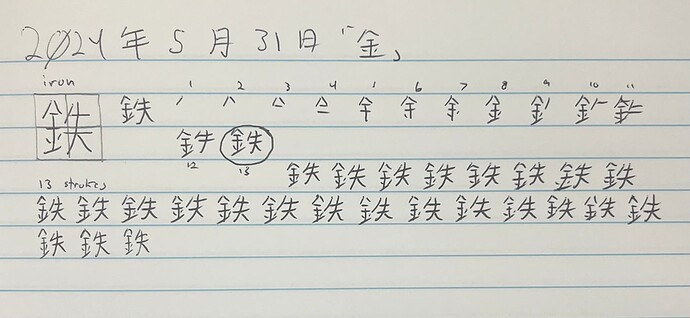 2024年5月31日「金」
iron 1 2 3 4 5 6 7 8 9 10 11
鉄 鉄
鉄
12 13
鉄 鉄 鉄 鉄 鉄 鉄 鉄 鉄
13 strokes
鉄 鉄 鉄 鉄 鉄 鉄 鉄 鉄 鉄 鉄 鉄 鉄 鉄 鉄
鉄 鉄 鉄